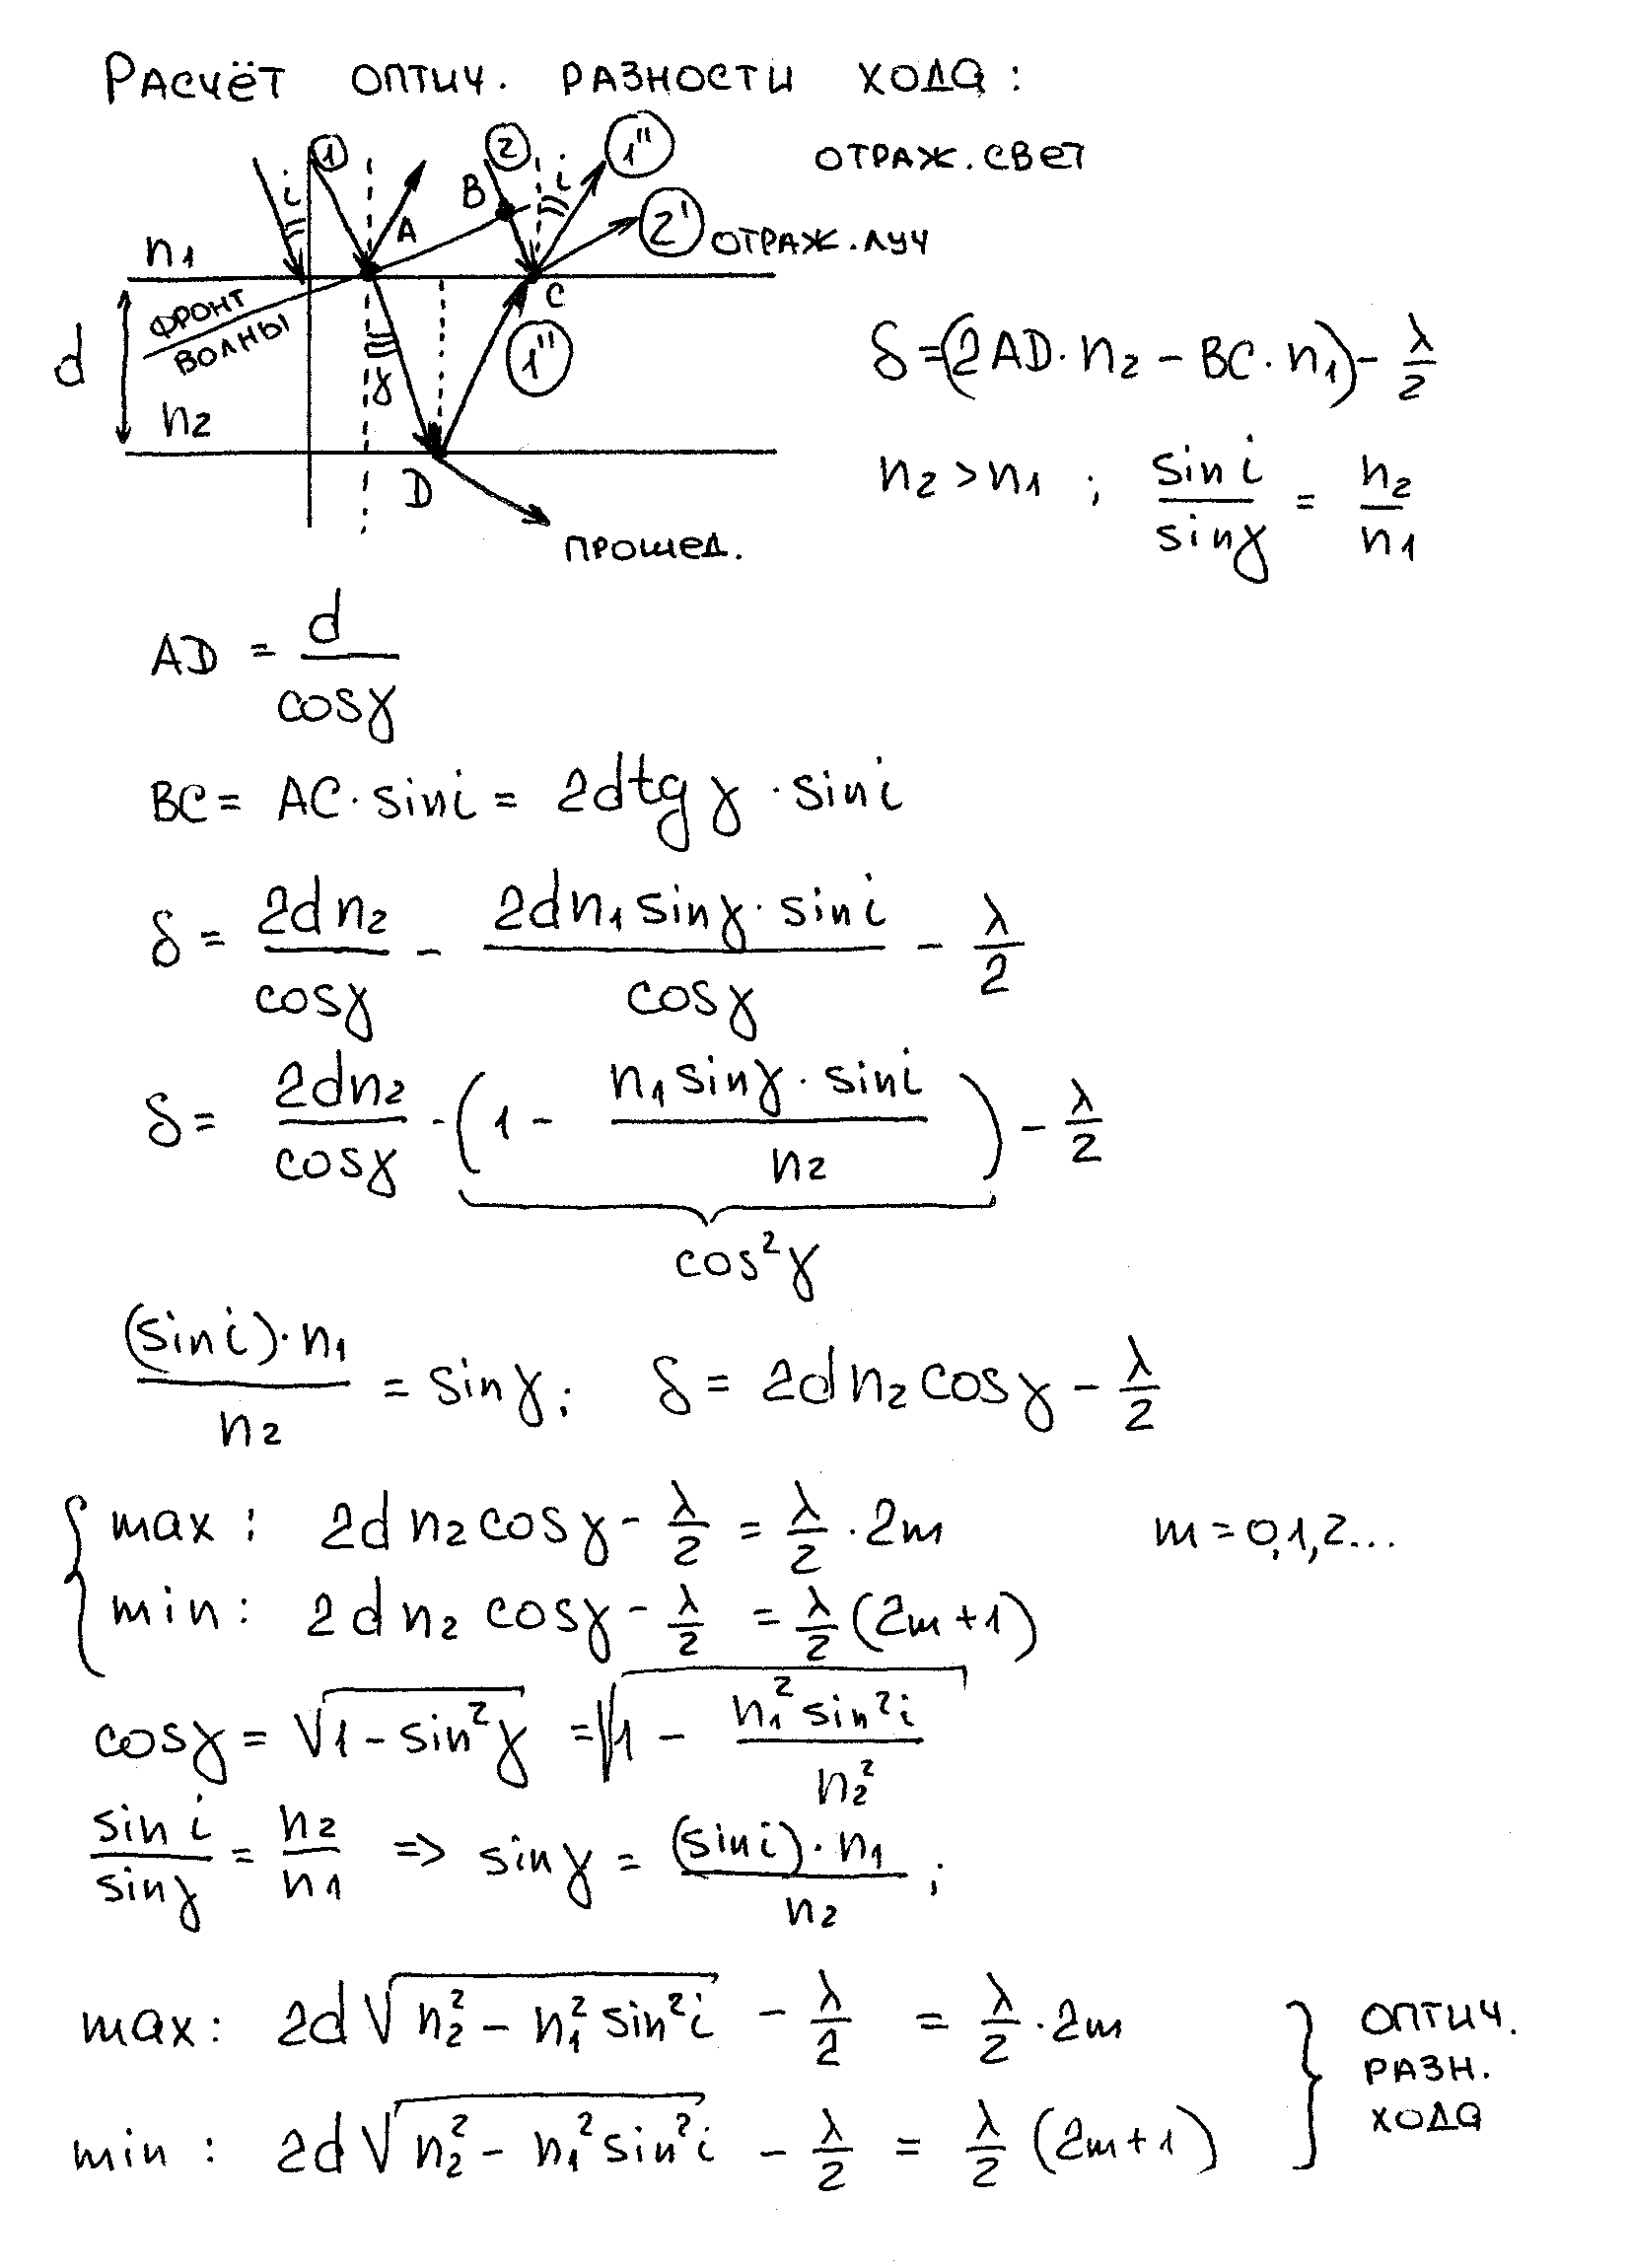 Расчёт оптич. разности хода:
1 2 1'' отраж. свет
i B i
A 2' отраж. луч
n₁
C
фронт волны
1''
d γ δ = (2AD · n₂ − BC · n₁) − λ/2
n₂
D n₂ > n₁ ; sin i / sin γ = n₂ / n₁
прошед.
AD = d / cos γ
BC = AC · sin i = 2d tg γ · sin i
δ = 2dn₂ / cos γ − 2dn₁ sin γ · sin i / cos γ − λ/2
δ = 2dn₂ / cos γ · (1 − n₁ sin γ · sin i / n₂) − λ/2
cos² γ
(sin i) · n₁ / n₂ = sin γ; δ = 2dn₂ cos γ − λ/2
max : 2dn₂ cos γ − λ/2 = λ/2 · 2m m = 0,1,2...
min : 2dn₂ cos γ − λ/2 = λ/2 (2m+1)
cos γ = √(1 − sin² γ) = √(1 − n₁² sin² i / n₂²)
sin i / sin γ = n₂ / n₁ => sin γ = (sin i) · n₁ / n₂ ;
max : 2d √(n₂² − n₁² sin² i) − λ/2 = λ/2 · 2m
min : 2d √(n₂² − n₁² sin² i) − λ/2 = λ/2 (2m+1)
оптич.
разн.
хода